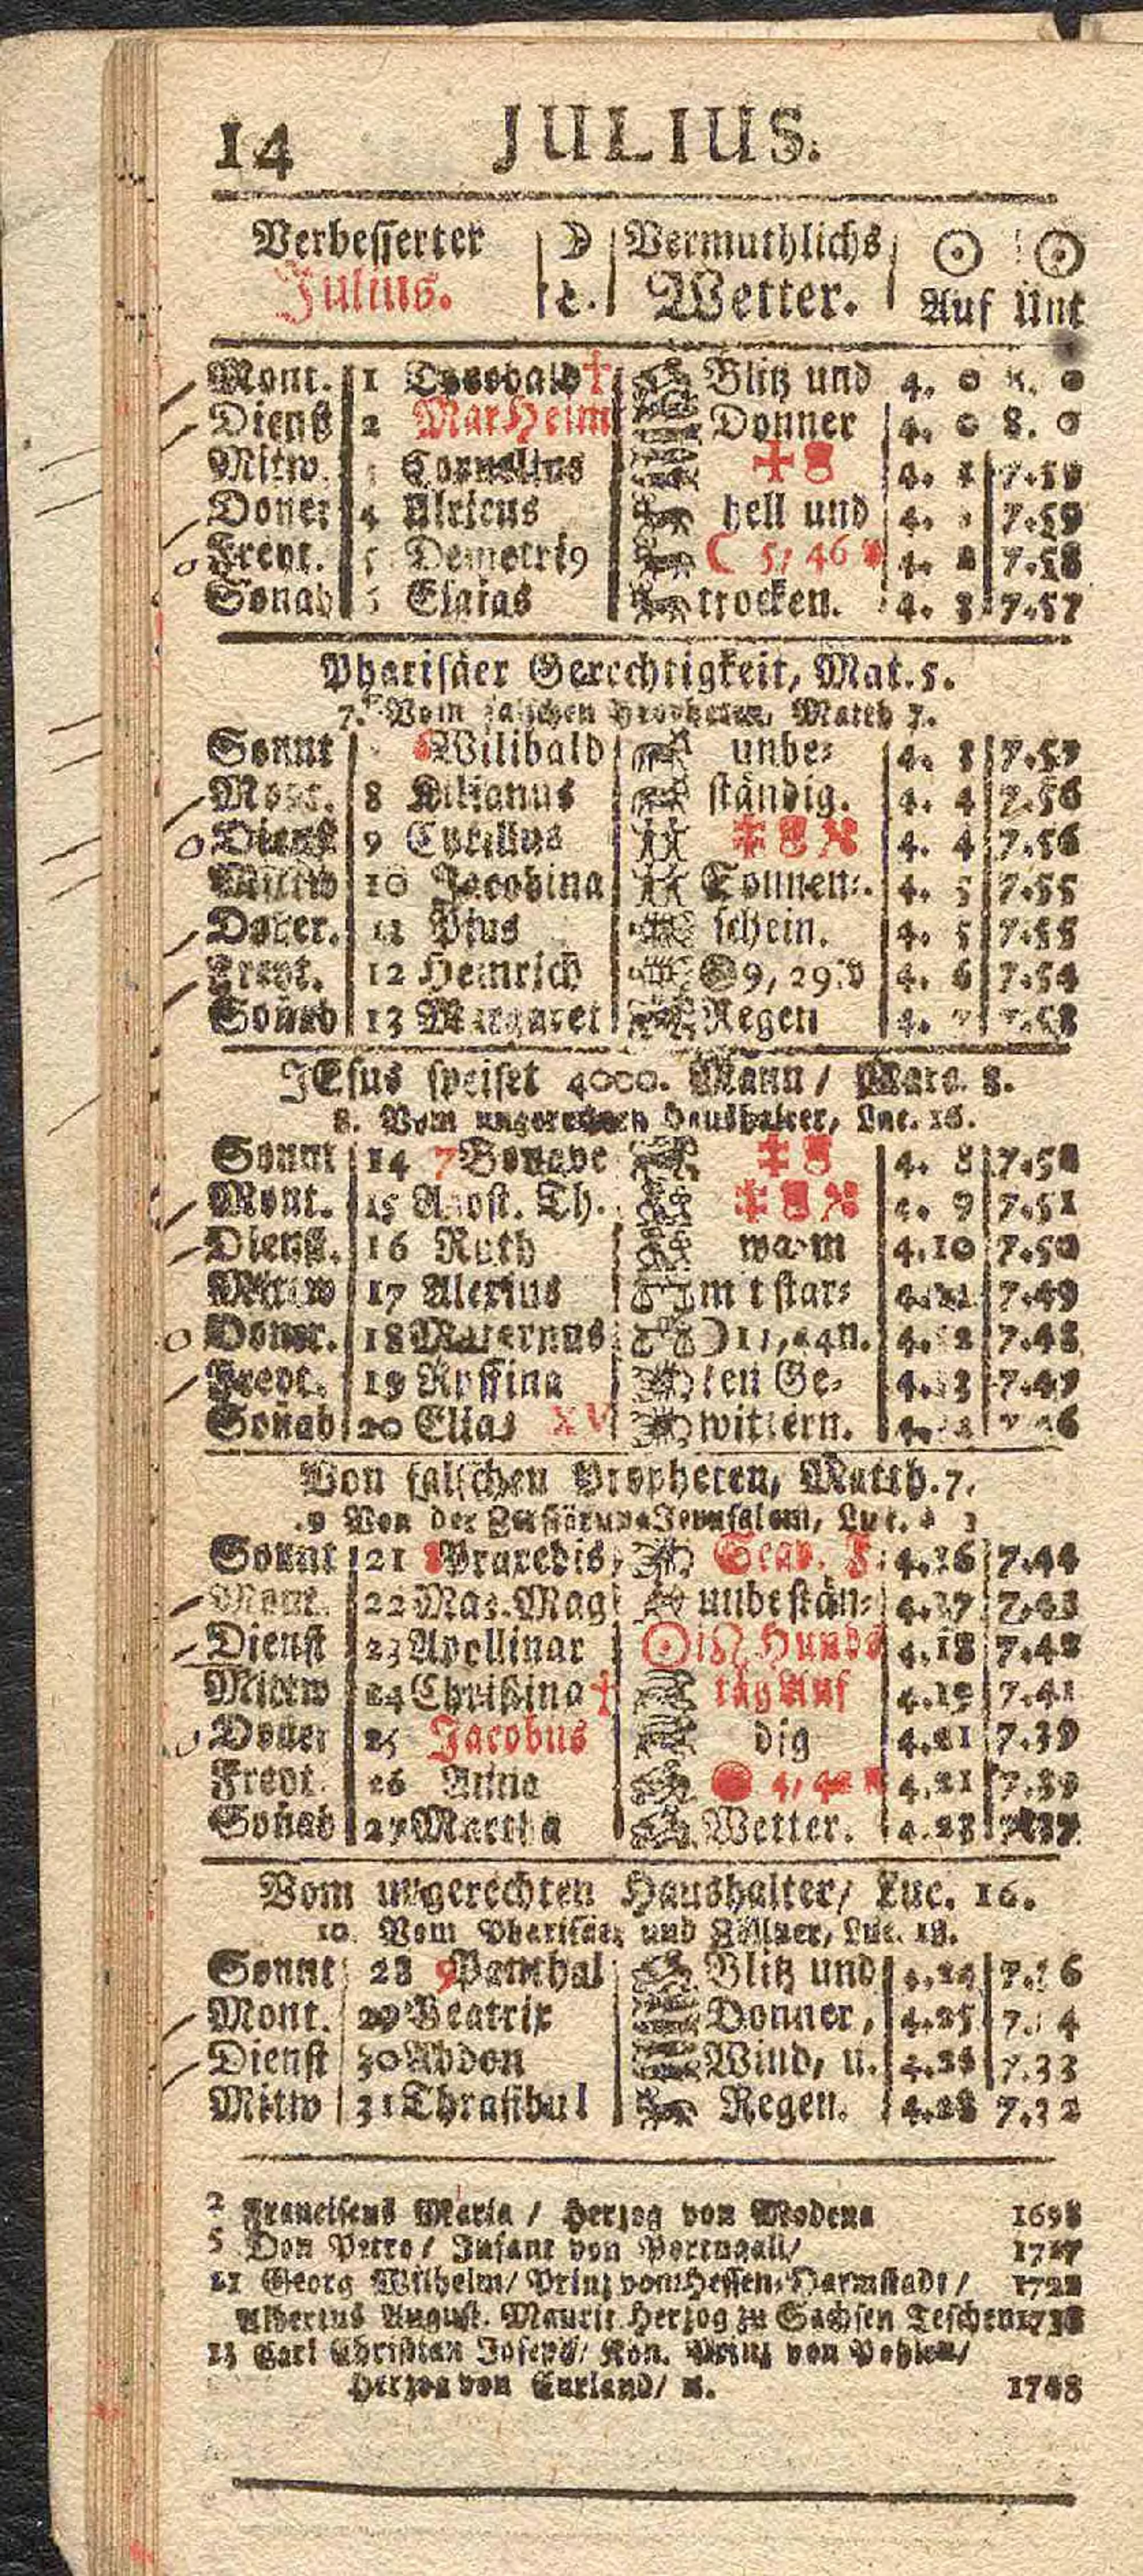 14 JULIUS.
Verbesserter ☽ Vermuthlichs ☉ ☉
Julius. Wetter. Auf Unt
Mont. 1 † Blitz und 4. 0 8. 0
Dienst 2 Mar Heim Donner 4. 0 8. 0
Mitw. Cornelius 4. 1 7.59
Doner 4 Ulricus hell und 4. 7.59
Freyt. 5 Demetri9 ☾ 5, 46 4. 2 7.58
Sonab 6 Esaias trocken. 4. 3 7.57
Pharisäer Gerechtigkeit, Mat. 5.
7. Vom falschen Propheten, Matth 7.
Sonnt 6 Wilibald unbe- 4. 3 7.57
Mont. 8 Kilianus ständig. 4. 4 7.56
Dienst 9 Cyrillus 4. 4 7.56
Mittw 10 Jacobina Sonnen- 4. 5 7.55
Doner. 11 Pius schein. 4. 5 7.55
Freyt. 12 Heinrich 9, 29. v 4. 6 7.54
Sonab 13 Margaret Regen 4. 7 7.53
JEsus speiset 4000. Mann / Marc. 8.
8. Vom ungerechten Haushalter, Luc. 16.
Sonnt 14 7 Bonave 4. 8 7.5
Mont. 15 Apost. Th. 4. 9 7.51
Dienst. 16 Ruth warm 4.10 7.50
Mittw 17 Alexius mit star- 4.11 7.49
Doner. 18 Maternus ☽ 11, 44n. 4.12 7.48
Freyt. 19 Ruffina ken Ge- 4.13 7.47
Sonab 20 Elias XV wittern. 4. 46
Von falschen Propheten, Matth. 7.
9 Von der Zerstörung Jerusalem, Luc.
Sonnt 21 8 Praxedis Scap. F. 4.16 7.44
Mont. 22 Mar. Mag unbestän- 4.17 7.43
Dienst 23 Apollinar ☉ in ♌ Hunds 4.18 7.42
Mittw 24 Christina † täg Auf 4.19 7.41
Doner 25 Jacobus dig 4.21 7.39
Freyt. 26 Anna ● 4, 4 4.21 7.39
Sonab 27 Martha Wetter. 4.23 7.37
Vom ungerechten Haushalter / Luc. 16.
10. Vom Pharisäer und Zöllner, Luc. 18.
Sonnt 28 9 Panthal Blitz und 4.24 7. 6
Mont. 29 Beatrix Donner, 4.25 7. 4
Dienst 30 Abdon Wind, u. 4.26 7.33
Mitw 31 Thrasibul Regen. 4.28 7.32
2 Franciscus Maria / Herzog von Modena 1698
5 Don Petro / Infant von Portugall / 1717
11 Georg Wilhelm / Prinz von Hessen-Darmstadt / 1722
Albertus August. Maurit. Herzog zu Sachsen Teschen 1738
13 Carl Christian Joseph / Kön. Prinz von Pohlen /
Herzog von Curland / 1.